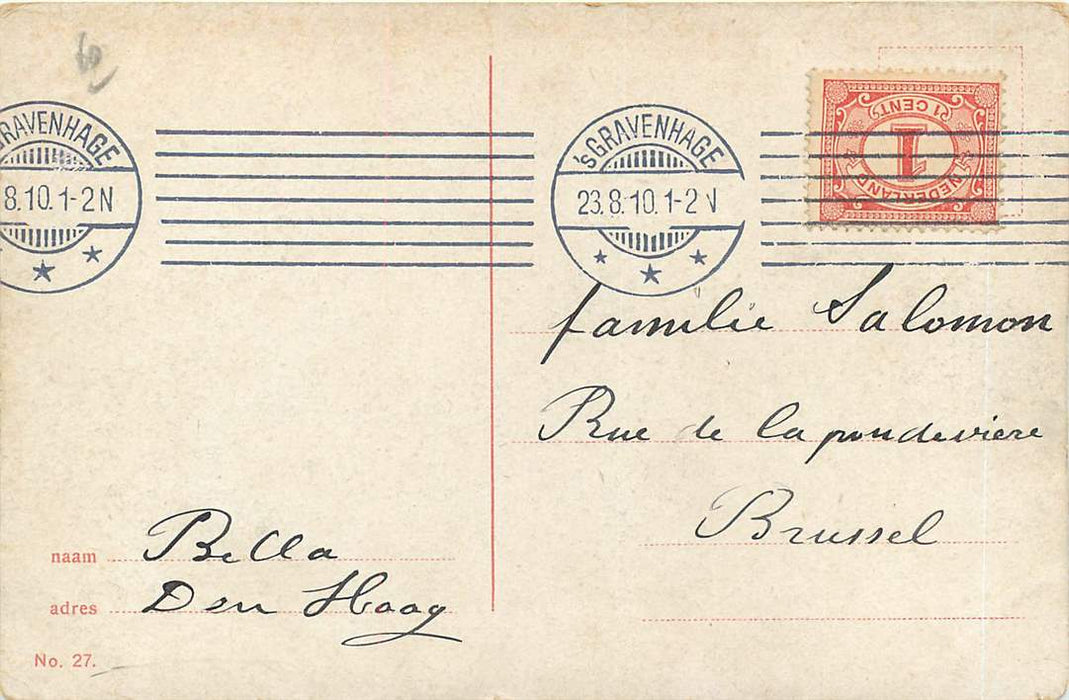 'sGRAVENHAGE
8.10.1-2N
'sGRAVENHAGE
23.8.10.1-2N
1 CENT
1
NEDERLAND
familie Salomon
Rue de la poudevière
Brussel
naam Bella
adres Den Haag
No. 27.